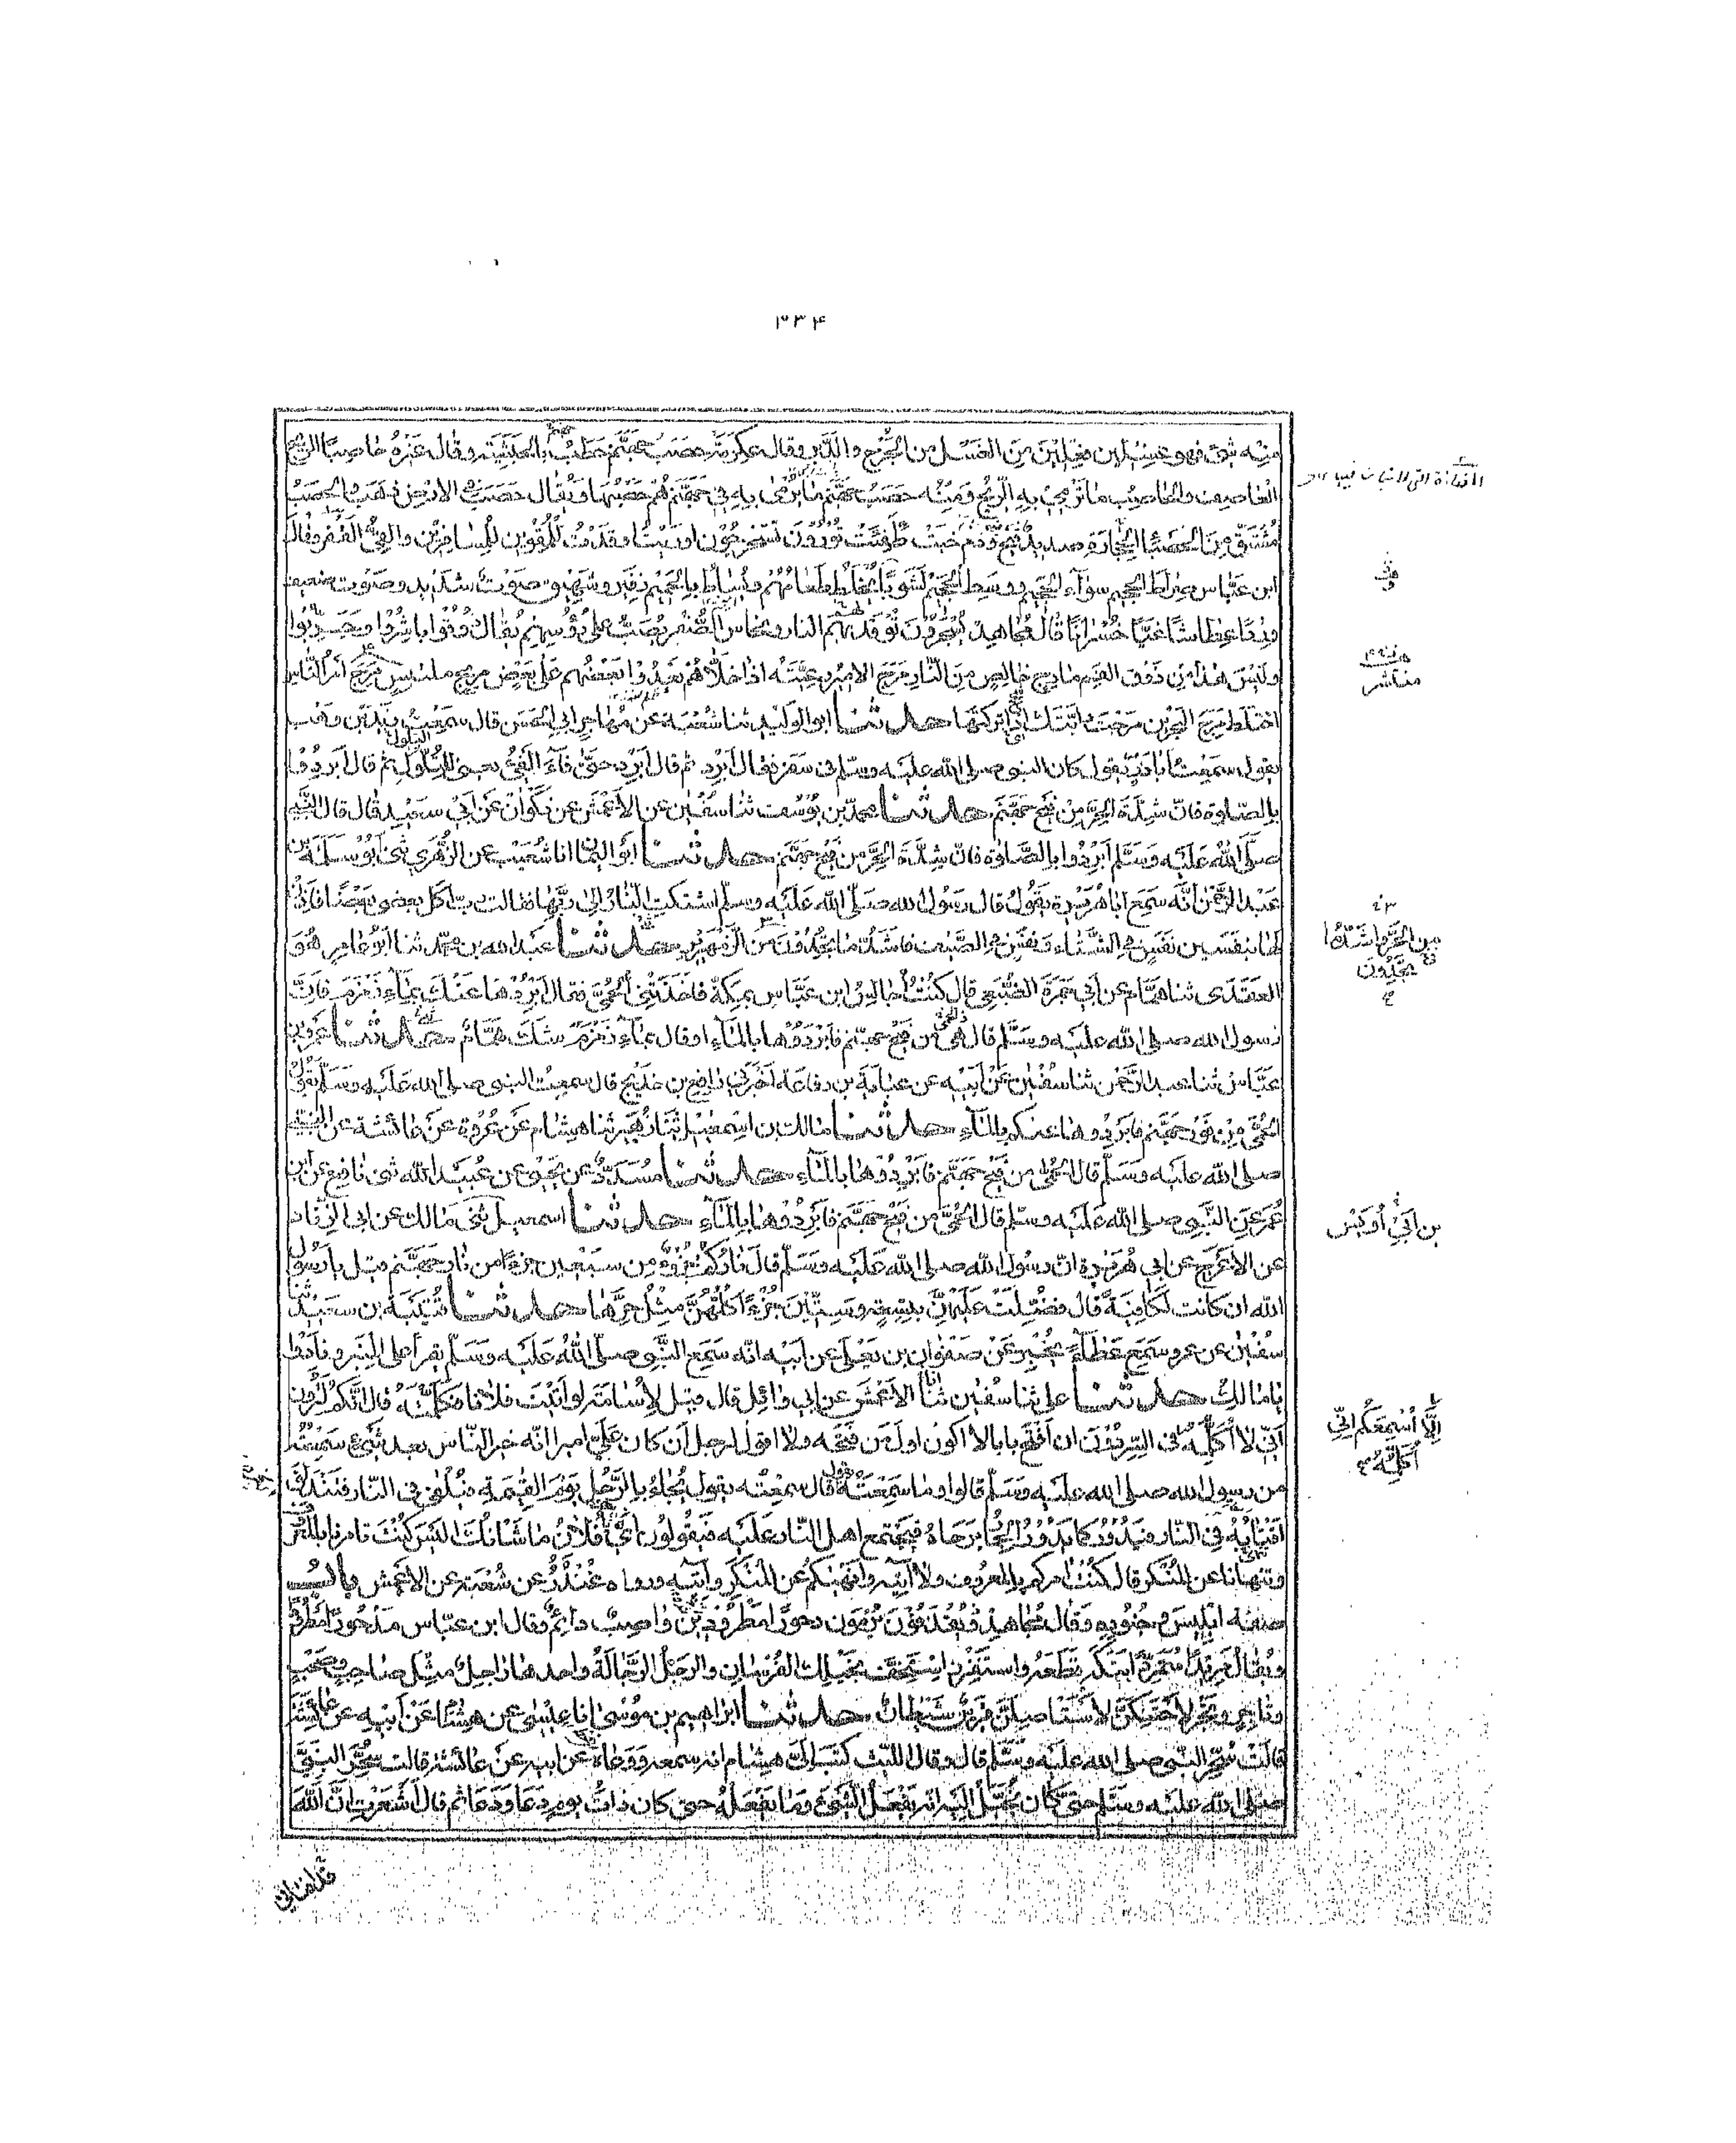 ٣٣٤
منه شئ فهو غسلين فعلين من الغسل من الجرح والدبر وقال عكرمة حصب جهنم حطب بالحبشية وقال غيره حاصبا الريح
العاصف والحاصب ما ترمى به الريح ومنه حصب جهنم ما يرمى به في جهنم هم حصبها ويقال حصب في الارض ذهب والحصب
مشتق من الحصباء الحجارة صديد قيح ودم خبت طفئت تورون تستخرجون اوريت اوقدت للمقوين للمسافرين والقي القفر وقال
ابن عباس صراط الجحيم سواء الجحيم ووسط الجحيم لشوبا يخلط طعامهم ويساط بالحميم زفير وشهيق صوت شديد وصوت ضعيف
وردا عطاشا غيا خسرانا قال مجاهد يسجرون توقد بهم النار ونحاس الصفر يصب على رؤسهم يقال ذوقوا باشروا وجربوا
وليس هذا من ذوق الفم مارج خالص من النار مرج الامير رعيته اذا خلاهم يعدوا بعضهم على بعض مريج ملتبس مرج امر الناس
اختلط مرج البحرين مرجت دابتك اذا تركتها حدثنا ابو الوليد ثنا شعبة عن مهاجر ابي الحسن قال سمعت زيد بن وهب
يقول سمعت اباذر يقول كان النبي صلى الله عليه وسلم في سفر فقال ابرد ثم قال ابرد حتى فاء الفئ يعني للتلول ثم قال ابردوا
بالصلوة فان شدة الحر من فيح جهنم حدثنا محمد بن يوسف ثنا سفين عن الاعمش عن ذكوان عن ابي سعيد قال قال النبي
صلى الله عليه وسلم ابردوا بالصلوة فان شدة الحر من فيح جهنم حدثنا ابو اليمان انا شعيب عن الزهري ثنى ابو سلمة بن
عبد الرحمن انه سمع ابا هريرة يقول قال رسول الله صلى الله عليه وسلم اشتكت النار الى ربها فقالت رب اكل بعضي بعضا فاذن
لها بنفسين نفس في الشتاء ونفس في الصيف فاشد ما تجدون من الزمهرير حدثنا عبد الله بن محمد ثنا ابو عامر هو
العقدى ثنا همام عن ابي جمرة الضبعي قال كنت اجالس ابن عباس بمكة فاخذتني الحمى فقال ابردها عنك بماء زمزم فان
رسول الله صلى الله عليه وسلم قال هي من فيح جهنم فابردوها بالماء او قال بماء زمزم شك همام حدثنا عمرو بن
عباس ثنا عبد الرحمن ثنا سفين عن ابيه عن عباية بن رفاعة اخبرني رافع بن خديج قال سمعت النبي صلى الله عليه وسلم يقول
الحمى من فور جهنم فابردوها عنكم بالماء حدثنا مالك بن اسمعيل ثنا زهير ثنا هشام عن عروة عن عائشة عن النبي
صلى الله عليه وسلم قال الحمى من فيح جهنم فابردوها بالماء حدثنا مسدد عن يحيى عن عبيد الله ثنى نافع عن ابن
عمر عن النبي صلى الله عليه وسلم قال الحمى من فيح جهنم فابردوها بالماء حدثنا اسمعيل ثنى مالك عن ابي الزناد
عن الاعرج عن ابي هريرة ان رسول الله صلى الله عليه وسلم قال ناركم جزء من سبعين جزءا من نار جهنم قيل يا رسول
الله ان كانت لكافية قال فضلت عليهن بتسعة وستين جزءا كلهن مثل حرها حدثنا قتيبة بن سعيد ثنا
سفين عن عمرو سمع عطاء يخبر عن صفوان بن يعلى عن ابيه انه سمع النبي صلى الله عليه وسلم يقرأ على المنبر ونادوا
يا مالك حدثنا علي ثنا سفين ثنا الاعمش عن ابي وائل قال قيل لاسامة لو اتيت فلانا فكلمته قال انكم لترون
اني لا اكلمه في السر دون ان افتح بابا لا اكون اول من فتحه ولا اقول لرجل ان كان علي اميرا انه خير الناس بعد شئ سمعته
من رسول الله صلى الله عليه وسلم قالوا وما سمعته قال سمعته يقول يجاء بالرجل يوم القيمة فيلقى في النار فتندلق
اقتابه في النار فيدور كما يدور الحمار برحاه فيجتمع اهل النار عليه فيقولون اي فلان ما شانك اليس كنت تامرنا بالمعروف
وتنهانا عن المنكر قال كنت امركم بالمعروف ولا آتيه وانهيكم عن المنكر وآتيه ورواه غندر عن شعبة عن الاعمش باب
صفة ابليس وجنوده وقال مجاهد ويقذفون يرمون دحورا مطرودين واصب دائم وقال ابن عباس مدحورا مطرودا
ويقال مريدا متمردا بتكه قطعه واستفزز استخف بخيلك الفرسان والرجل الرجالة واحدها راجل مثل صاحب وصحب
وتاجر وتجر لاحتنكن لاستاصلن قرين شيطان حدثنا ابراهيم بن موسى انا عيسى عن هشام عن ابيه عن عائشة
قالت سحر النبي صلى الله عليه وسلم قال وقال الليث كتب الى هشام انه سمعه ووعاه عن ابيه عن عائشة قالت سحر النبي
صلى الله عليه وسلم حتى كان يخيل اليه انه يفعل الشئ وما يفعله حتى كان ذات يوم دعا ودعا ثم قال أشعرت ان الله
قد افتاني
من الحر واشد ما
تجدون
بن ابي أويس
الا اسمعكم اني
اكلمه